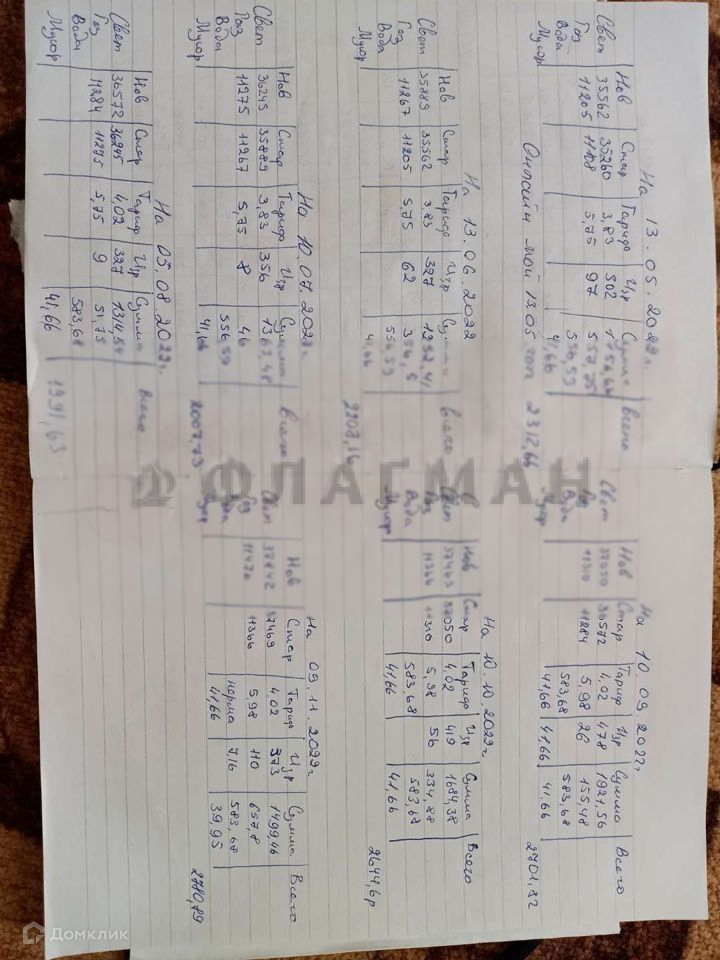 На 13.05.2022г.
Нов Стар Тариф Изр Сумма Всего
Свет 35562 35260 3,83 502
Газ 11205 11108 5,75 97 557,75
Вода 556,59
Мусор 41,66
Онлайн мой 13.05 2312,66
На 13.06.2022
Нов Стар Тариф Изр Сумма Всего
Свет 35889 35562 3,83 327 1252,41
Газ 11267 11205 5,75 62
Вода 556,59
Мусор 41,66
На 10.07.2022г.
Нов Стар Тариф Изр Сумма Всего
Свет 36245 35889 3,83 356 1363,48
Газ 11275 11267 5,75 8 46
Вода 556,59
Мусор 41,66
2007,73
На 05.08.2022г.
Нов Стар Тариф Изр Сумма Всего
Свет 36572 36245 4,02 327 1314,54
Газ 11284 11275 5,75 9 51,75
Вода 583,68
Мусор 41,66
1991,63
ФЛАГМАН
На 10.09.2022г
Нов Стар Тариф Изр Сумма Всего
Свет 37050 36572 4,02 478 1921,56
Газ 11310 11284 5,98 26 155,48
Вода 583,68 583,68
Мусор 41,66 41,66 41,66
2701,82
На 10.10.2022г
Нов Стар Тариф Изр Сумма Всего
Свет 37469 37050 4,02 419 1684,38
Газ 11366 11310 5,98 56 334,88
Вода 583,68 583,68
Мусор 41,66 41,66
2644,6р
На 09.11.2022г
Нов Стар Тариф Изр Сумма Всего
Свет 37842 37469 4,02 373 1499,46
Газ 11476 11366 5,98 110 657,8
норма 716 583,68
41,66 39,95
2780,89
Домклик